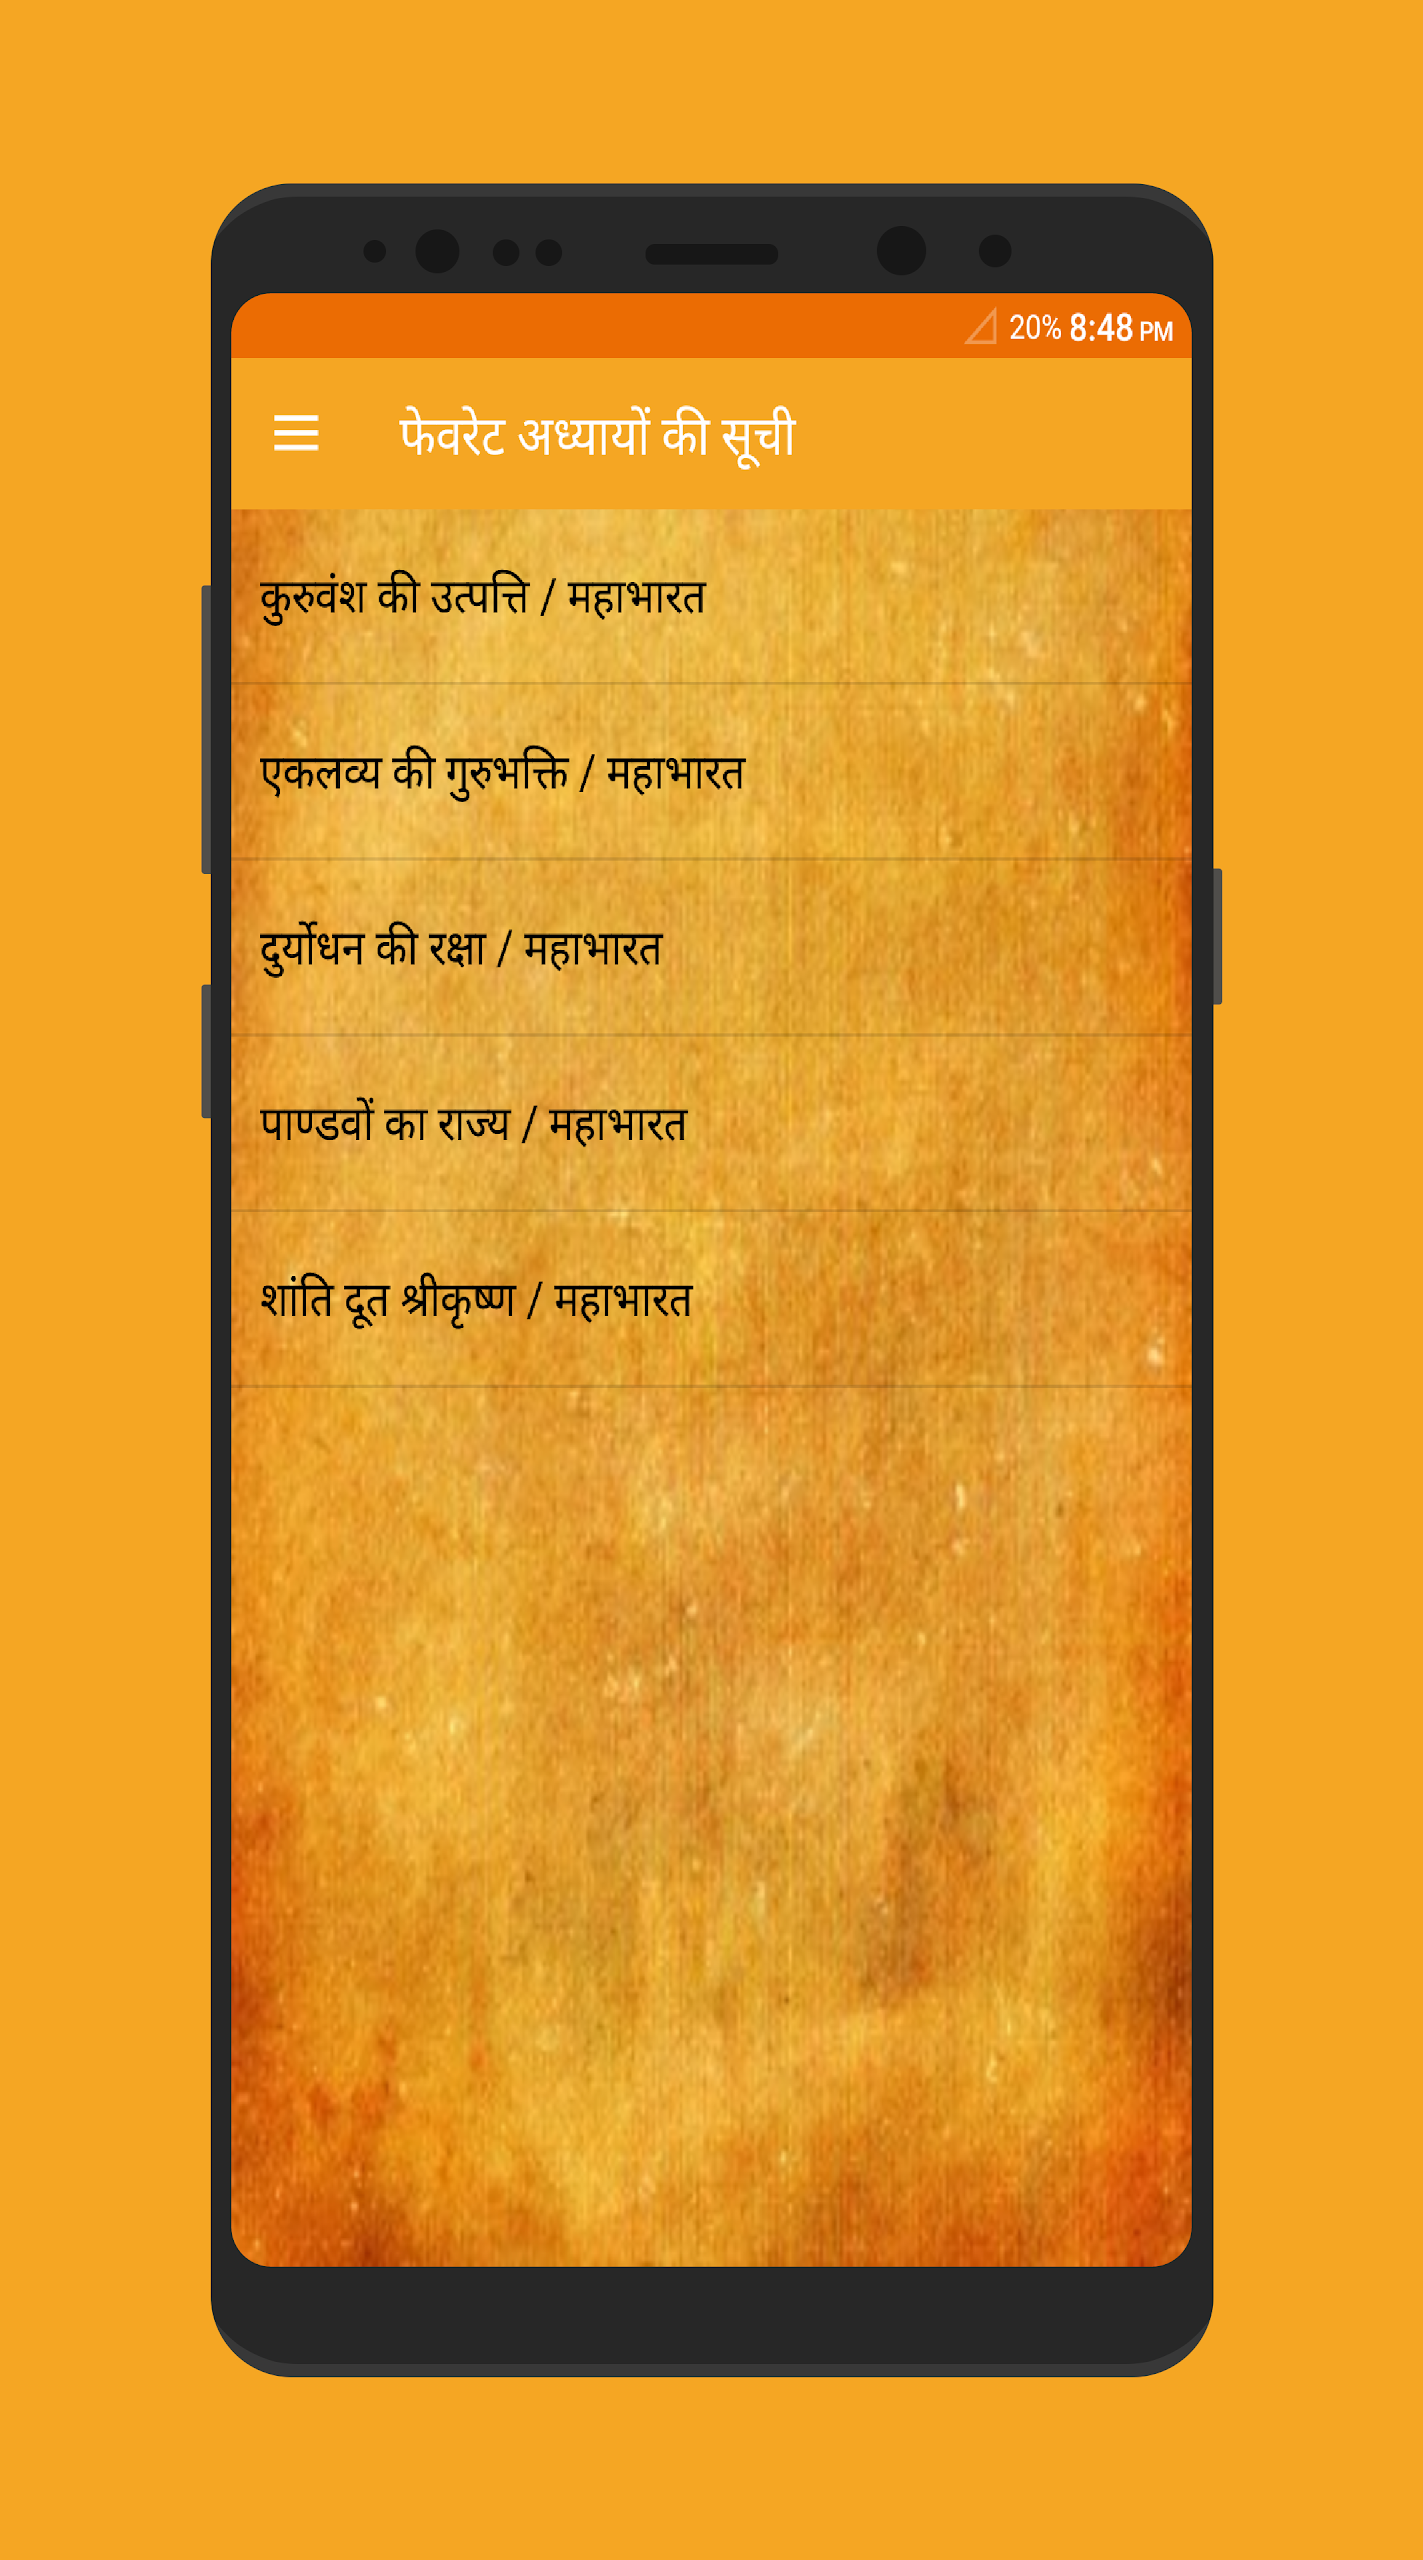 20% 8:48 PM
फेवरेट अध्यायों की सूची
कुरुवंश की उत्पत्ति / महाभारत
एकलव्य की गुरुभक्ति / महाभारत
दुर्योधन की रक्षा / महाभारत
पाण्डवों का राज्य / महाभारत
शांति दूत श्रीकृष्ण / महाभारत